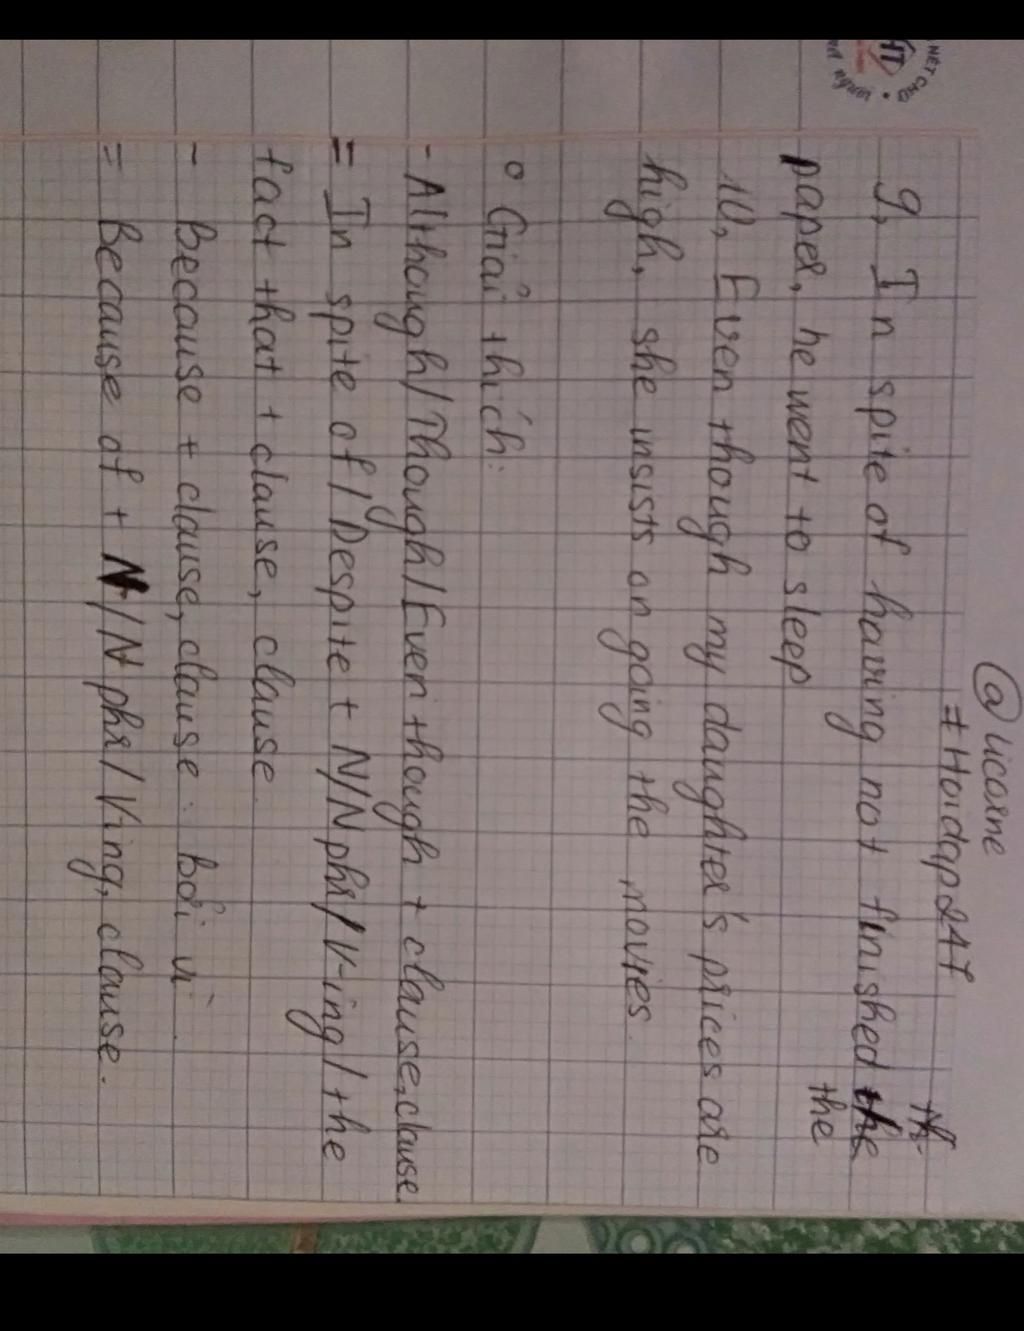 @Licorne
#Hoidap247
9, In spite of having not finished the
paper, he went to sleep
10, Even though my daughter's prices are
high, she insists on going the movies.
o Giải thích:
- Although/Though/Even though + clause, clause.
= In spite of/Despite + N/N phr/V-ing/the
fact that + clause, clause.
- Because + clause, clause: bởi vì.
= Because of + N/N phr/Ving, clause.
NÉT CHỮ
NẾT người